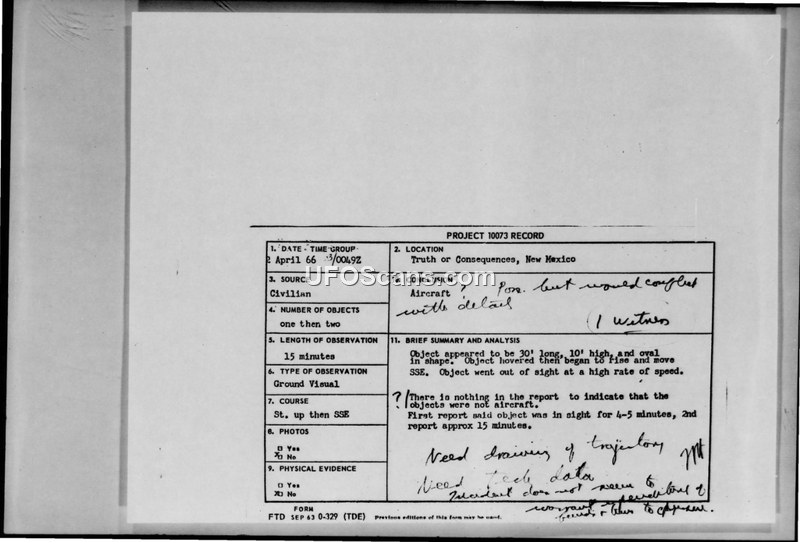 PROJECT 10073 RECORD
1. DATE - TIME GROUP
2 April 66 3/0049Z
2. LOCATION
Truth or Consequences, New Mexico
3. SOURCE
Civilian
10. CONCLUSION
Aircraft ? Poss. but would conflict
with details
(1 Witness
4. NUMBER OF OBJECTS
one then two
5. LENGTH OF OBSERVATION
15 minutes
11. BRIEF SUMMARY AND ANALYSIS
Object appeared to be 30' long, 10' high, and oval
in shape. Object hovered then began to rise and move
SSE. Object went out of sight at a high rate of speed.
6. TYPE OF OBSERVATION
Ground Visual
7. COURSE
St. up then SSE
? There is nothing in the report to indicate that the
objects were not aircraft.
First report said object was in sight for 4-5 minutes, 2nd
report approx 15 minutes.
8. PHOTOS
□ Yes
X□ No
Need drawing of trajectory
Need tech data
Incident does not seem to
warrant
9. PHYSICAL EVIDENCE
□ Yes
X□ No
FORM
FTD SEP 63 0-329 (TDE) Previous editions of this form may be used.
UFOScans.com